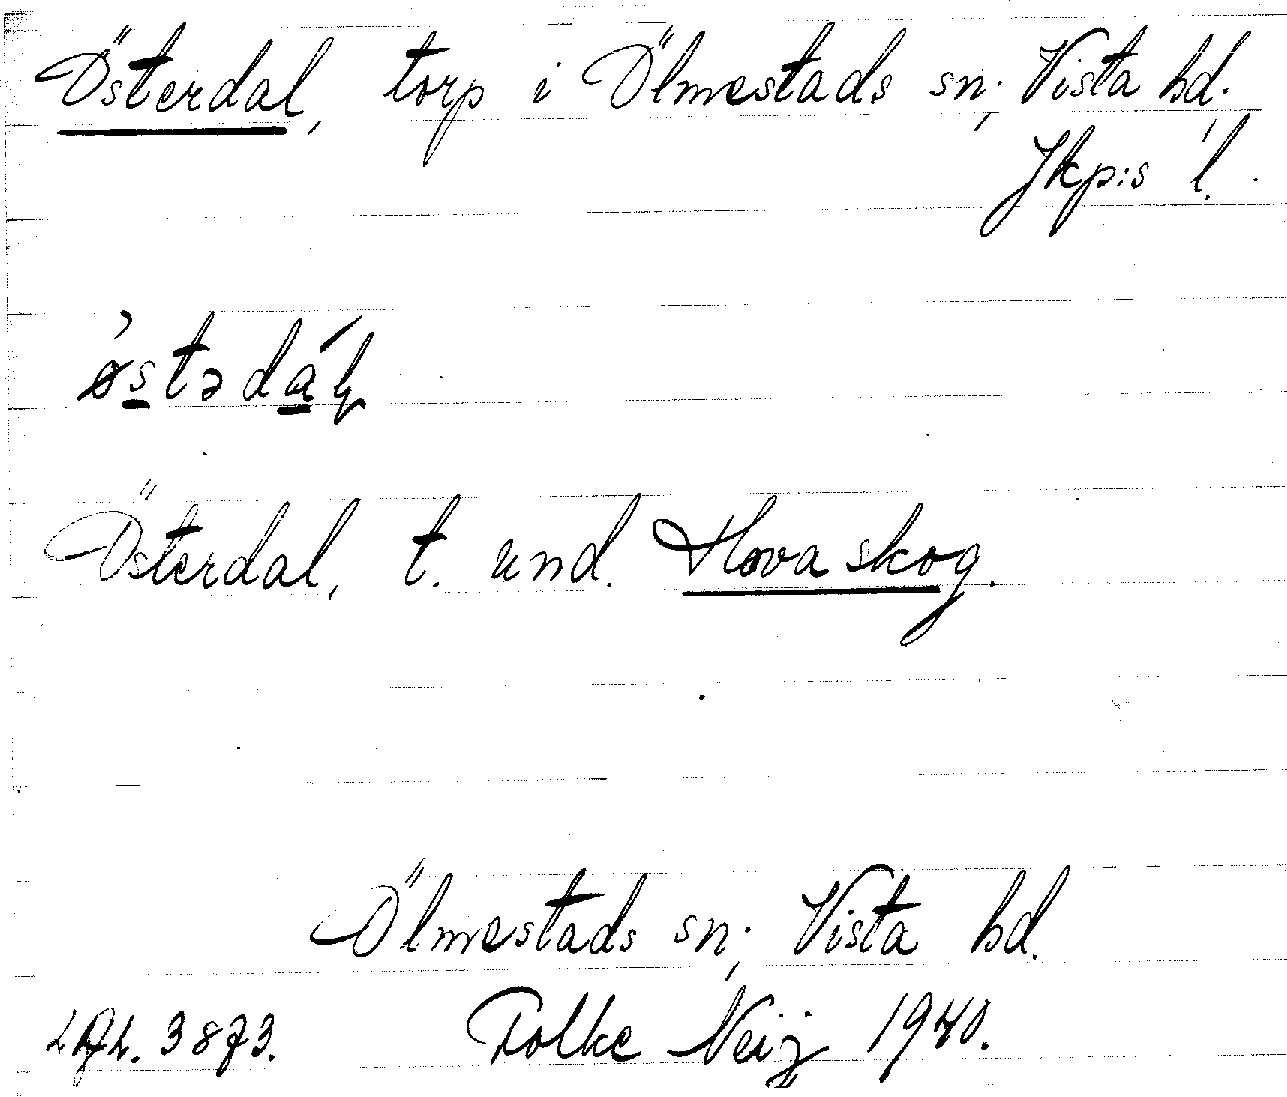 Österdal, torp i Ölmestads sn; Vista hd.
Jkp:s l.
Österdal, t. und. Hovaskog.
Ölmestads sn; Vista hd.
3873. Folke Neij 1940.